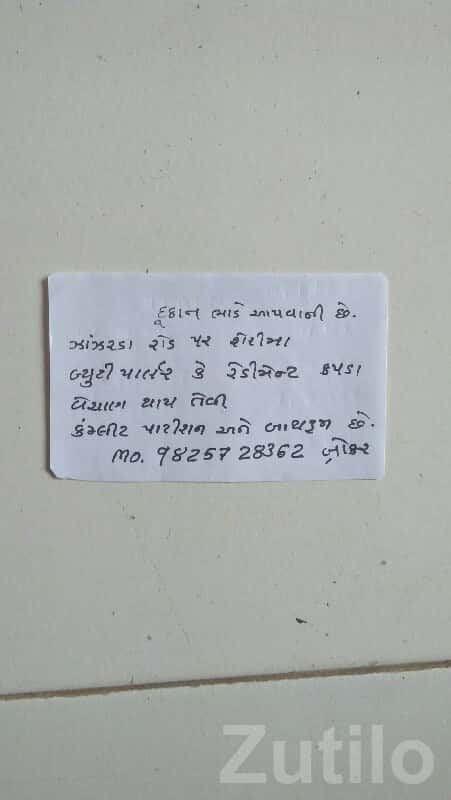 દુકાન ભાડે આપવાની છે.
ઝાંઝરડા રોડ પર શેરીમા
બ્યુટી પાર્લર કે રેડીમેન્ટ કપડા
વેચાણ થાય તેવી
કંમ્લીટ પાટીશન અને બાથરૂમ છે.
MO. 98257 28362 બ્રોકર
Zutilo